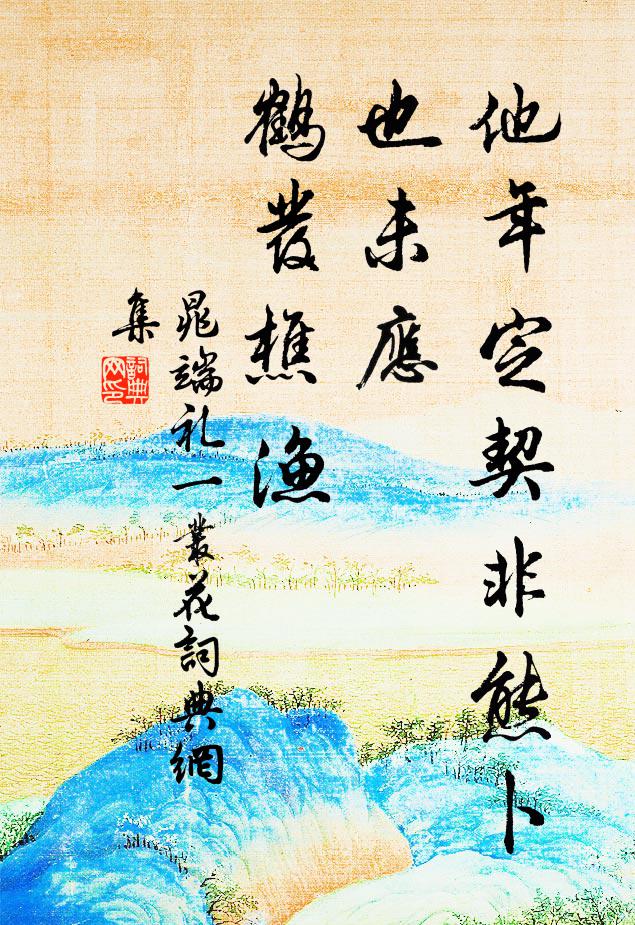 他年定契非熊卜
也未應
鶴發樵漁
晁端礼一叢花詞典網
集
詞典
网印